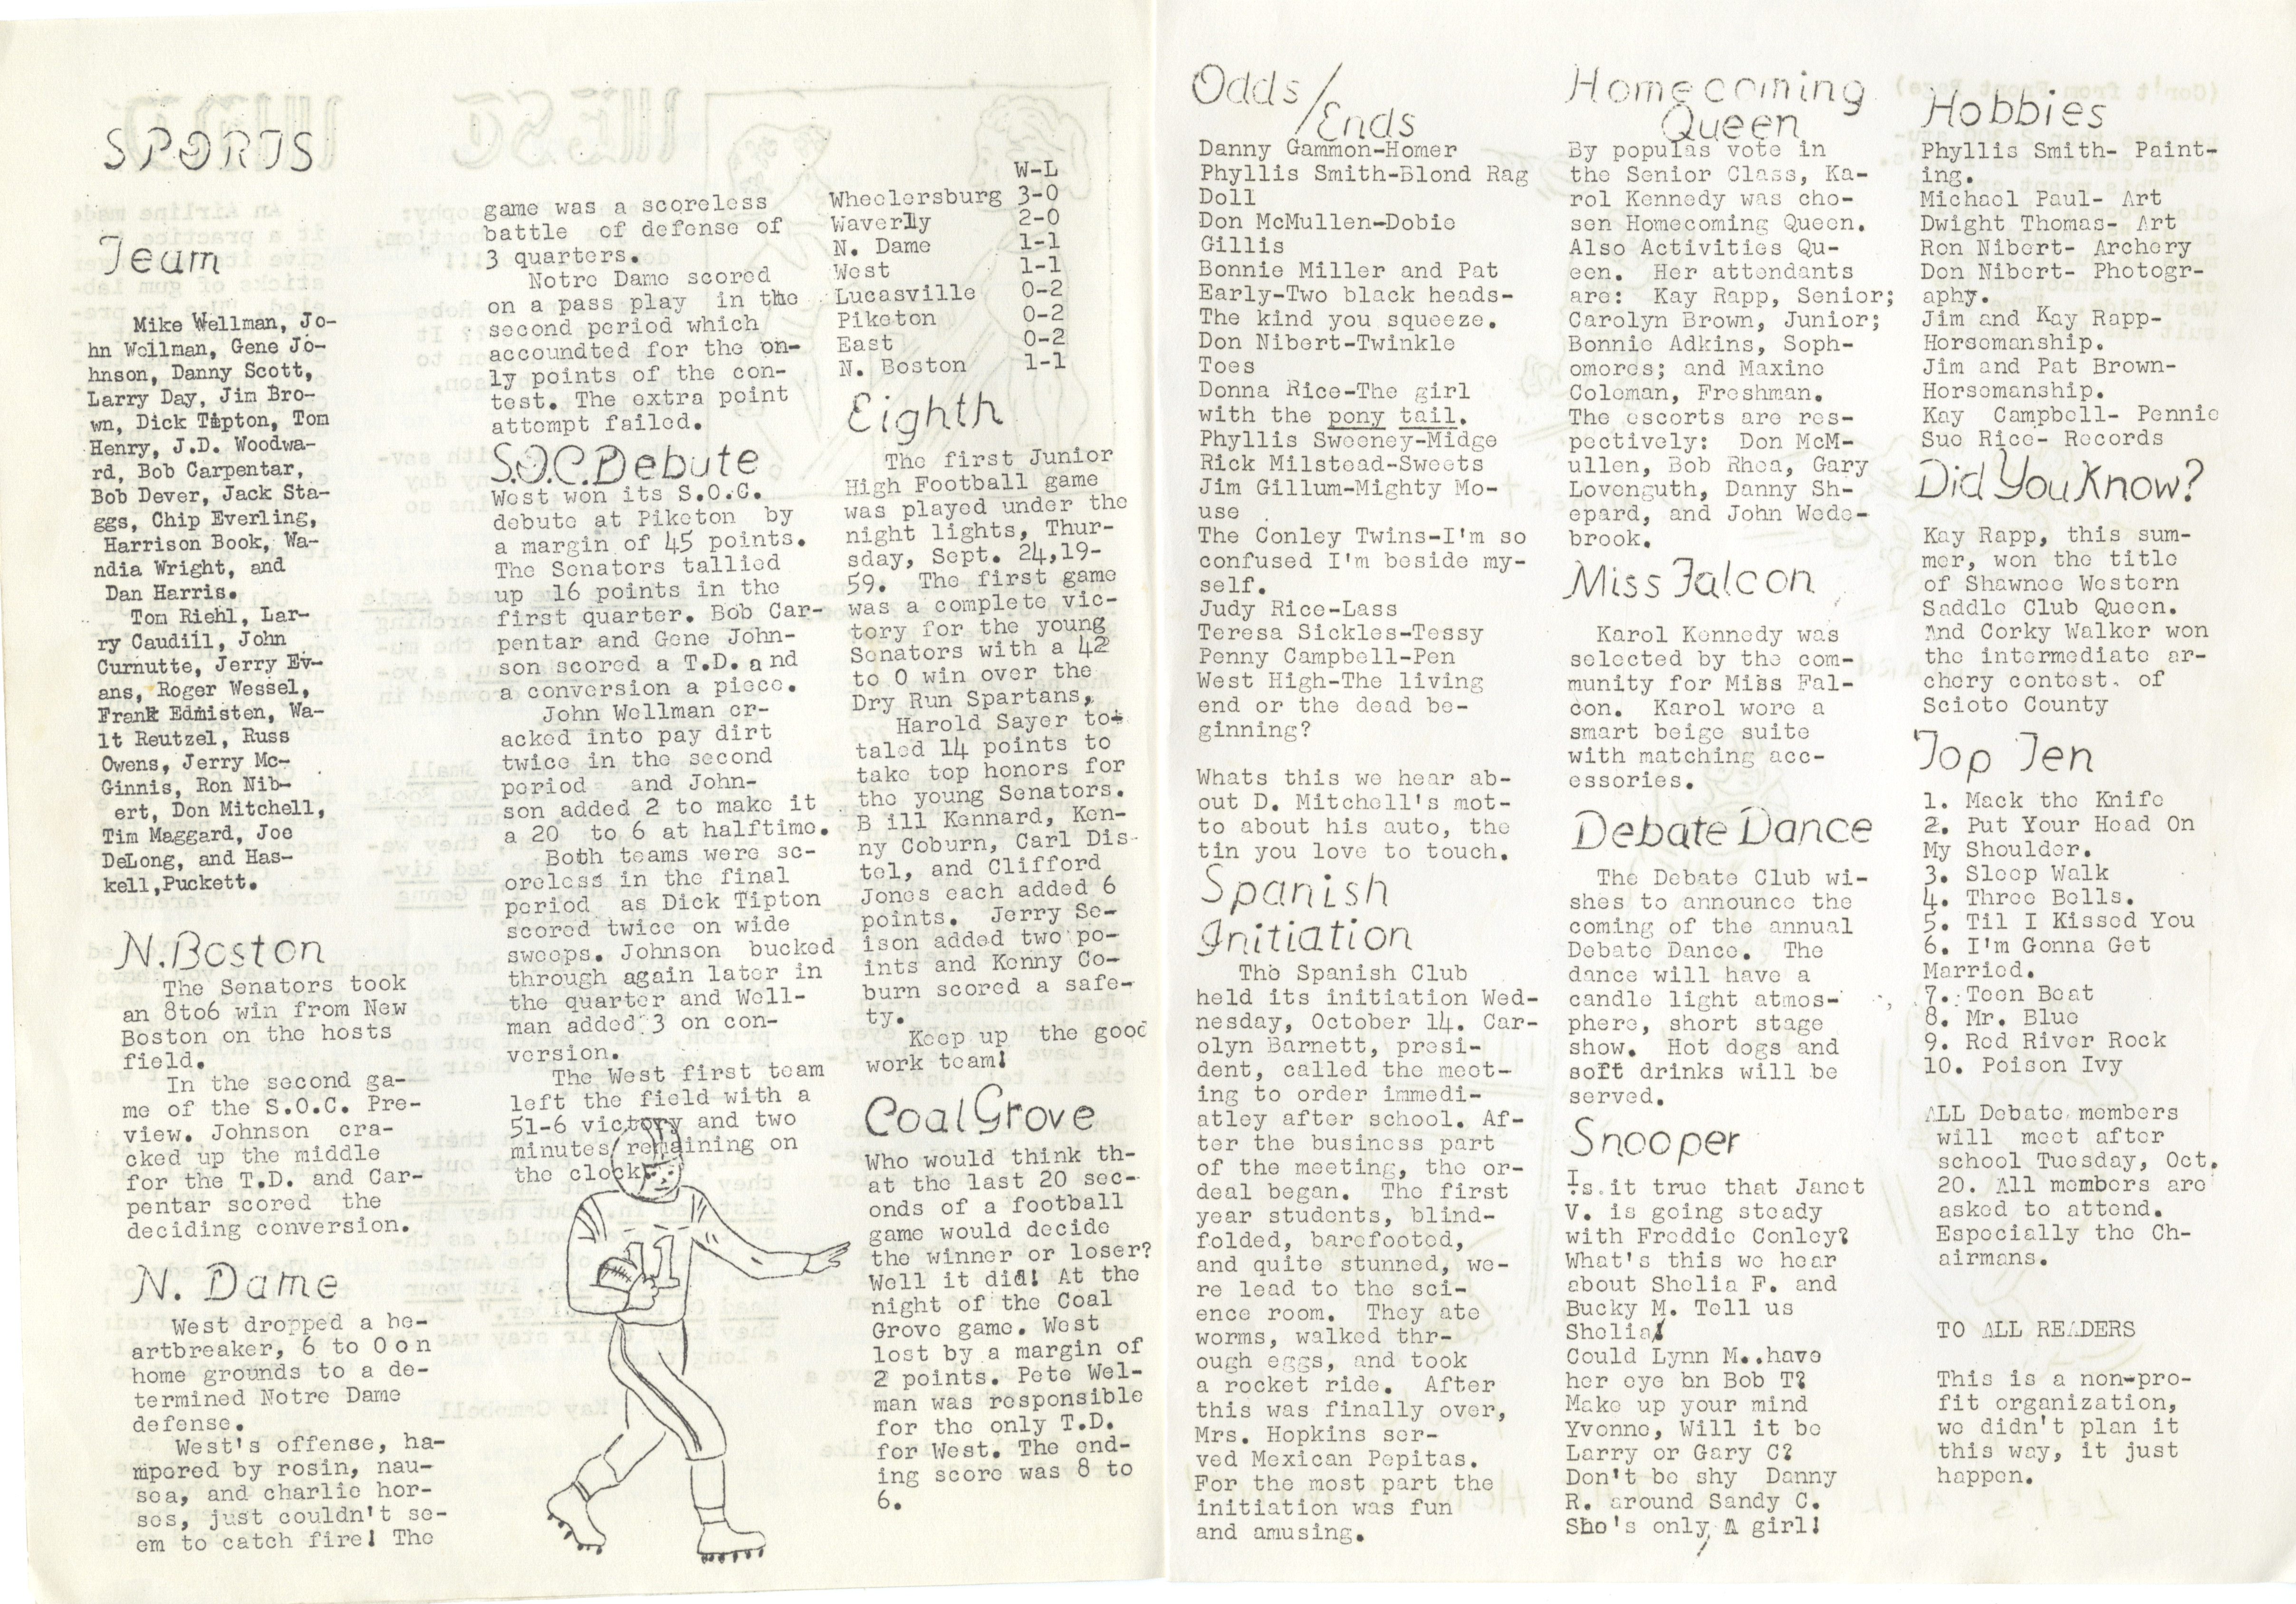 SPORTS
Team
Mike Wellman, Jo-
hn Wellman, Gene Jo-
hnson, Danny Scott,
Larry Day, Jim Bro-
wn, Dick Tipton, Tom
Henry, J.D. Woodwa-
rd, Bob Carpentar,
Bob Dever, Jack Sta-
ggs, Chip Everling,
Harrison Book, Wa-
ndia Wright, and
Dan Harris.
Tom Riehl, Lar-
ry Caudiil, John
Curnutte, Jerry Ev-
ans, Roger Wessel,
Frank Edmisten, Wa-
lt Reutzel, Russ
Owens, Jerry Mc-
Ginnis, Ron Nib-
ert, Don Mitchell,
Tim Maggard, Joe
DeLong, and Has-
kell,Puckett.
N.Boston
The Senators took
an 8to6 win from New
Boston on the hosts
field.
In the second ga-
me of the S.O.C. Pre-
view. Johnson cra-
cked up the middle
for the T.D. and Car-
pentar scored the
deciding conversion.
N. Dame
West dropped a he-
artbreaker, 6 to 0 on
home grounds to a de-
termined Notre Dame
defense.
West's offense, ha-
mpered by rosin, nau-
sea, and charlie hor-
ses, just couldn't se-
em to catch fire! The
game was a scoreless
battle of defense of
3 quarters.
Notre Dame scored
on a pass play in the
second period which
accoundted for the on-
ly points of the con-
test. The extra point
attempt failed.
S.O.C.Debute
West won its S.O.C.
debute at Piketon by
a margin of 45 points.
The Senators tallied
up 16 points in the
first quarter. Bob Car-
pentar and Gene John-
son scored a T.D. and
a conversion a piece.
John Wellman cr-
acked into pay dirt
twice in the second
period and John-
son added 2 to make it
a 20 to 6 at halftime.
Both teams were sc-
oreless in the final
period as Dick Tipton
scored twice on wide
sweeps. Johnson bucked
through again later in
the quarter and Well-
man added 3 on con-
version.
The West first team
left the field with a
51-6 victory and two
minutes remaining on
the clock.
11
W-L
Wheelersburg 3-0
Waverly 2-0
N. Dame 1-1
West 1-1
Lucasville 0-2
Piketon 0-2
East 0-2
N. Boston 1-1
Eighth
The first Junior
High Football game
was played under the
night lights, Thur-
sday, Sept. 24,19-
59. The first game
was a complete vic-
tory for the young
Senators with a 42
to 0 win over the
Dry Run Spartans,
Harold Sayer to-
taled 14 points to
take top honors for
the young Senators.
B ill Kennard, Ken-
ny Coburn, Carl Dis-
tel, and Clifford
Jones each added 6
points. Jerry Se-
ison added two po-
ints and Kenny Co-
burn scored a safe-
ty.
Keep up the good
work team!
Coal Grove
Who would think th-
at the last 20 sec-
onds of a football
game would decide
the winner or loser?
Well it did! At the
night of the Coal
Grove game. West
lost by a margin of
2 points. Pete Wel-
man was responsible
for the only T.D.
for West. The end-
ing score was 8 to
6.
Odds/
Ends
Danny Gammon-Homer
Phyllis Smith-Blond Rag
Doll
Don McMullen-Dobie
Gillis
Bonnie Miller and Pat
Early-Two black heads-
The kind you squeeze.
Don Nibert-Twinkle
Toes
Donna Rice-The girl
with the pony tail.
Phyllis Sweeney-Midge
Rick Milstead-Sweets
Jim Gillum-Mighty Mo-
use
The Conley Twins-I'm so
confused I'm beside my-
self.
Judy Rice-Lass
Teresa Sickles-Tessy
Penny Campbell-Pen
West High-The living
end or the dead be-
ginning?
Whats this we hear ab-
out D. Mitchell's mot-
to about his auto, the
tin you love to touch.
Spanish
Initiation
The Spanish Club
held its initiation Wed-
nesday, October 14. Car-
olyn Barnett, presi-
dent, called the meet-
ing to order immedi-
atley after school. Af-
ter the business part
of the meeting, the or-
deal began. The first
year students, blind-
folded, barefooted,
and quite stunned, we-
re lead to the sci-
ence room. They ate
worms, walked thr-
ough eggs, and took
a rocket ride. After
this was finally over,
Mrs. Hopkins ser-
ved Mexican Pepitas.
For the most part the
initiation was fun
and amusing.
Homecoming
Queen
By populas vote in
the Senior Class, Ka-
rol Kennedy was cho-
sen Homecoming Queen.
Also Activities Qu-
een. Her attendants
are: Kay Rapp, Senior;
Carolyn Brown, Junior;
Bonnie Adkins, Soph-
omores; and Maxine
Coleman, Freshman.
The escorts are res-
pectively: Don McM-
ullen, Bob Rhea, Gary
Lovenguth, Danny Sh-
epard, and John Wede-
brook.
Miss Falcon
Karol Kennedy was
selected by the com-
munity for Miss Fal-
con. Karol wore a
smart beige suite
with matching acc-
essories.
Debate Dance
The Debate Club wi-
shes to announce the
coming of the annual
Debate Dance. The
dance will have a
candle light atmos-
phere, short stage
show. Hot dogs and
soft drinks will be
served.
Snooper
Is it true that Janet
V. is going steady
with Freddie Conley?
What's this we hear
about Shelia F. and
Bucky M. Tell us
Shelia!
Could Lynn M..have
her eye on Bob T?
Make up your mind
Yvonne, Will it be
Larry or Gary C?
Don't be shy Danny
R. around Sandy C.
She's only A girl!
Hobbies
Phyllis Smith- Paint-
ing.
Michael Paul- Art
Dwight Thomas- Art
Ron Nibert- Archery
Don Nibert- Photogr-
aphy.
Jim and Kay Rapp-
Horsemanship.
Jim and Pat Brown-
Horsemanship.
Kay Campbell- Pennie
Sue Rice- Records
Did You Know?
Kay Rapp, this sum-
mer, won the title
of Shawnee Western
Saddle Club Queen.
And Corky Walker won
the intermediate ar-
chery contest. of
Scioto County
Top Ten
1. Mack the Knife
2. Put Your Head On
My Shoulder.
3. Sleep Walk
4. Three Bells.
5. Til I Kissed You
6. I'm Gonna Get
Married.
7. Teen Beat
8. Mr. Blue
9. Red River Rock
10. Poison Ivy
ALL Debate members
will meet after
school Tuesday, Oct.
20. All members are
asked to attend.
Especially the Ch-
airmans.
TO ALL READERS
This is a non-pro-
fit organization,
we didn't plan it
this way, it just
happen.